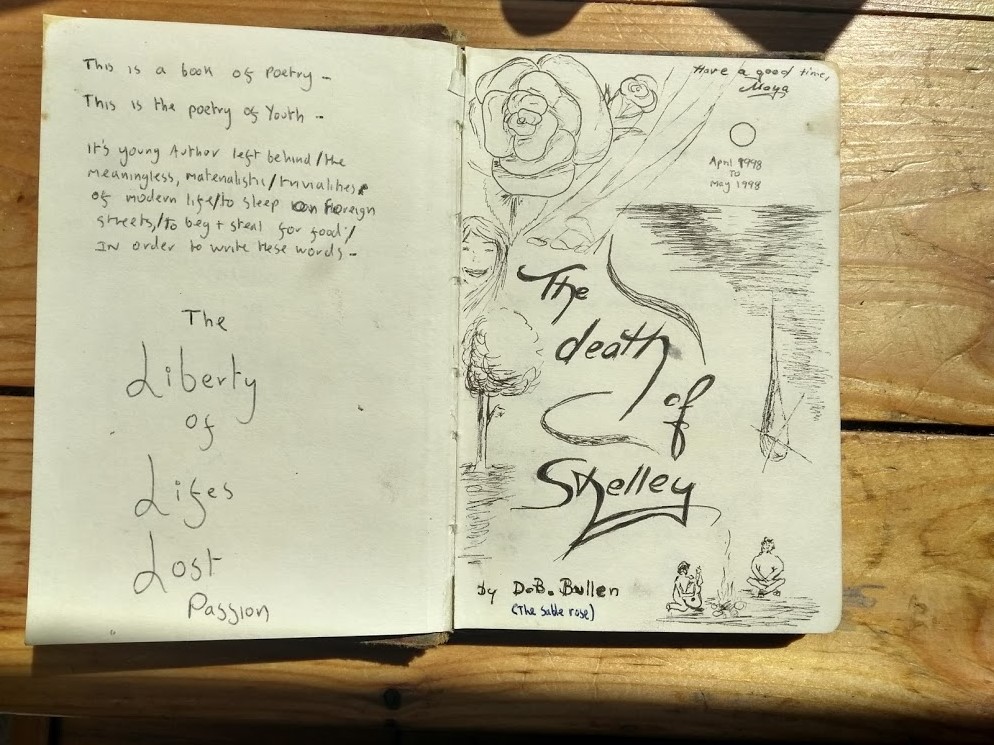 This is a book of Poetry -
This is the poetry of Youth -
It's young Author left behind/the
meaningless, materialistic/trivialities
of modern life/to sleep on foreign
streets/to beg + steal for food/
IN order to write these words -
The
Liberty
of
Lifes
Lost
Passion
Have a good time,
Moya
April 1998
TO
May 1998
The
death
of
Shelley
by D.B. Bullen
(The sable rose)